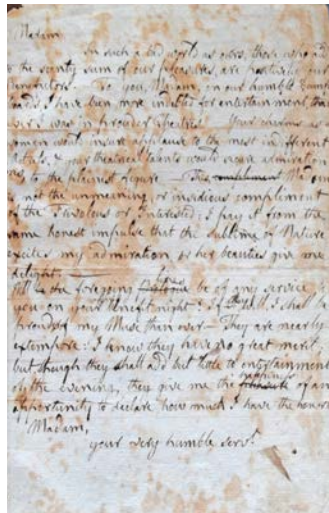 Madam
In such a bad world as ours, those who add
the scanty sum of our pleasures, are positively our
To you, Madam, on our humble
I have been more indebted for entertainment, than
ever I was in prouder Theatres. Your charms as a
woman would insure applause to the most indifferent
& your theatrical talents would secure admiration
to the plainest figure. This compliment Madam
is not the unmeaning or insidious compliment
of the Frivolous or Interested; I pay it from the
same honest impulse that the sublime of Nature
excites my admiration, or her beauties give me
delight.
Will the foregoing be of any service
you on your benefit night? If I shall be
prouder of my Muse than ever — They are nearly
extempore: I know they have no great merit
but though they shall add but little to entertainment
of the evening, they give me the happiness of an
opportunity to declare how much I have the honor
Madam,
your very humble servt